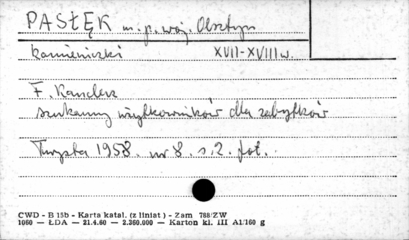 PASŁĘK m. p. woj. Olsztyn
kamieniczki XVII-XVIII w.
F. Kanderz
szukamy użytkowników dla zabytków
Turysta 1958. nr 8. s. 2. fot.
CWD - B 15b - Karta katal. (z liniat) - Zam 788/ZW
1060 — ŁDA — 21.4.60 — 2.260.000 — Karton kl. III A1/160 g